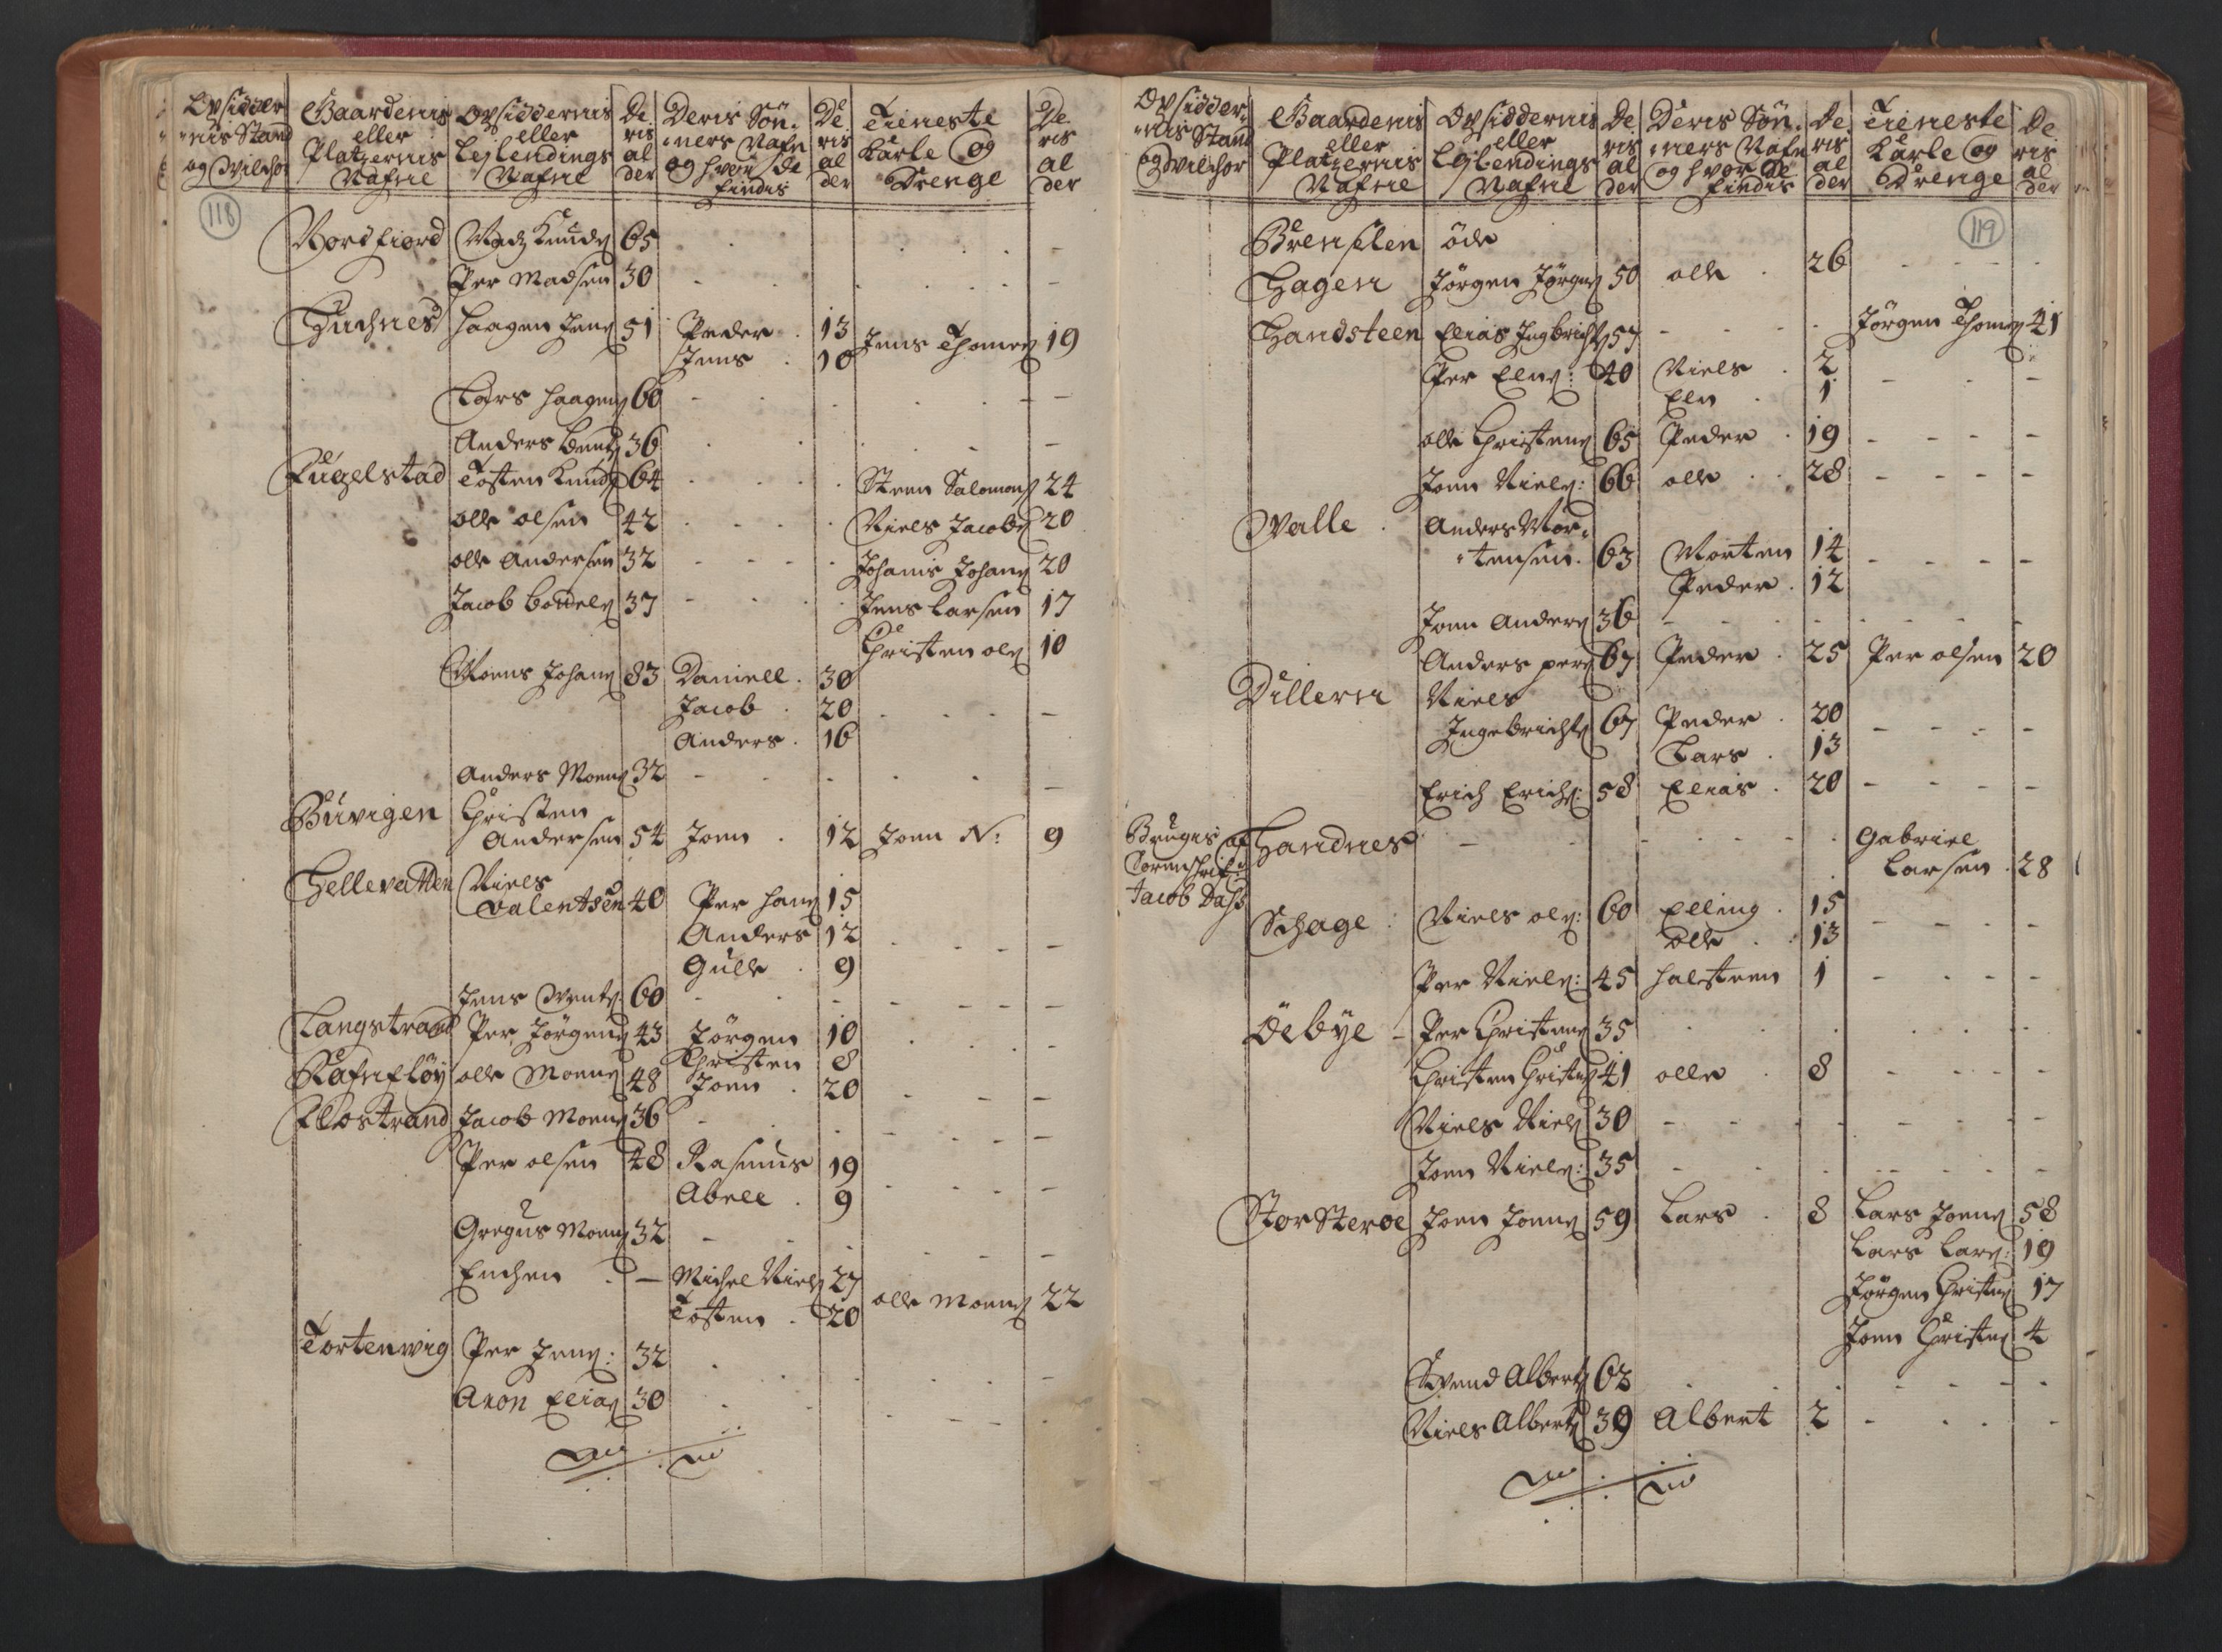 Opsidder
nis Stand
og Wilchor
Gaardenis
eller
Platzernis
Nafne
Opsiddernis
eller
Lejlendings
Nafne
De
ris
al
der
Deris Søn
ners Nafn
og hvor de
findis
De
ris
al
der
Tieneste
Karle og
Drenge
De
ris
al
der
118
Nordfiord Madz Knuds 65
Per Madsen 30
Huchnes Haagen Jens 51 Peder 13
Jens 10 Jens Thomes 19
Lars Haagens 60
Anders Bentz 36
Fugelstad Tosten Knuds 64 Steen Salomons 24
Olle Olsen 42 Niels Jacobs 20
Olle Andersen 32 Johanis Johans 20
Jacob Bottels 37 Jens Larsen 17
Christen Ols 10
Moens Johans 83 Daniell 30
Jacob 20
Anders 16
Anders Moens 32
Buvigen Christen
Andersen 54 Joen 12 Joen N: 9
Hellevatten Niels
Valentsen 40 Per Hans 15
Anders 12
Gulle 9
Jens Wents 60
Langstrand Per Jørgens 43 Jørgen 10
Christen 8
Rafnfløy Olle Moens 48 Joen 20
Flostrand Jacob Moens 36
Per Olsen 48 Rasmus 19
Abell 9
Gregus Moens 32
Enchen Michel Niels 27
Tosten 20 Olle Moens 22
Tortenwig Per Jens: 32
Aron Elias 30
Opsidder
nis Stand
og Wilchor
Gaardenis
eller
Platzernis
Nafne
Opsiddernis
eller
Lejlendings
Nafne
De
ris
al
der
Deris Søn
ners Nafn
og hvor de
findis
De
ris
al
der
Tieneste
Karle og
Drenge
De
ris
al
der
119
Brenslen øde
Hagen Jørgen Jørgens 50 Olle 26
Handsteen Elias Ingbrichts 57 Jørgen Thomes 41
Per Elns: 40 Niels 2
Eln 1
Olle Christens 65 Peder 19
Joen Niels: 66 Olle 28
Walle Anders Mor
tensen 63 Morten 14
Peder 12
Joen Anders 36
Anders Pers 67 Peder 25 Per Olsen 20
Dillern Niels
Ingebrichts 67 Peder 20
Lars 13
Erich Erichs: 58 Elias 20
Brugis af
Sorenschrif:
Jacob Dass
Handnes Gabriel
Larsen 28
Schage Niels Ols: 60 Elling 15
Olle 13
Per Niels: 45 Halsteen 1
Öebye Per Christens 35
Christen Christens 41 Olle 8
Niels Niels 30
Joen Niels: 35
Storsteroe Joen Joens 59 Lars 8 Lars Joens 58
Lars Lars: 19
Jørgen Christens 17
Joen Christens 4
Swend Alberts 63
Niels Alberts 39 Albert 2